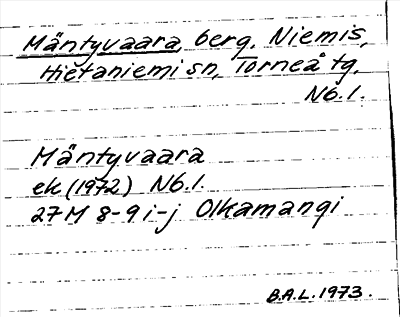 Mäntyvaara, berg, Niemis,
Hietaniemi sn, Torneå tg.
Nb.1.
Mäntyvaara
ek (1972) Nb.1.
27M 8-9 i-j Olkamangi
B.A.L. 1973.